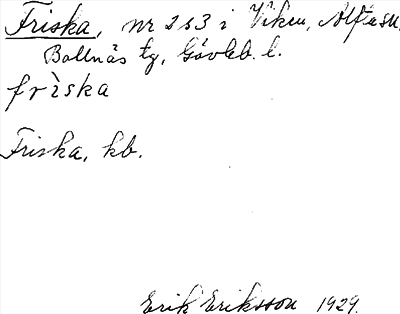 Friska, nr 2 s3 i Viken, Alfta sn.
Bollnäs tg, Gävleb. l.
frìska
Friska, kb.
Erik Eriksson 1929.